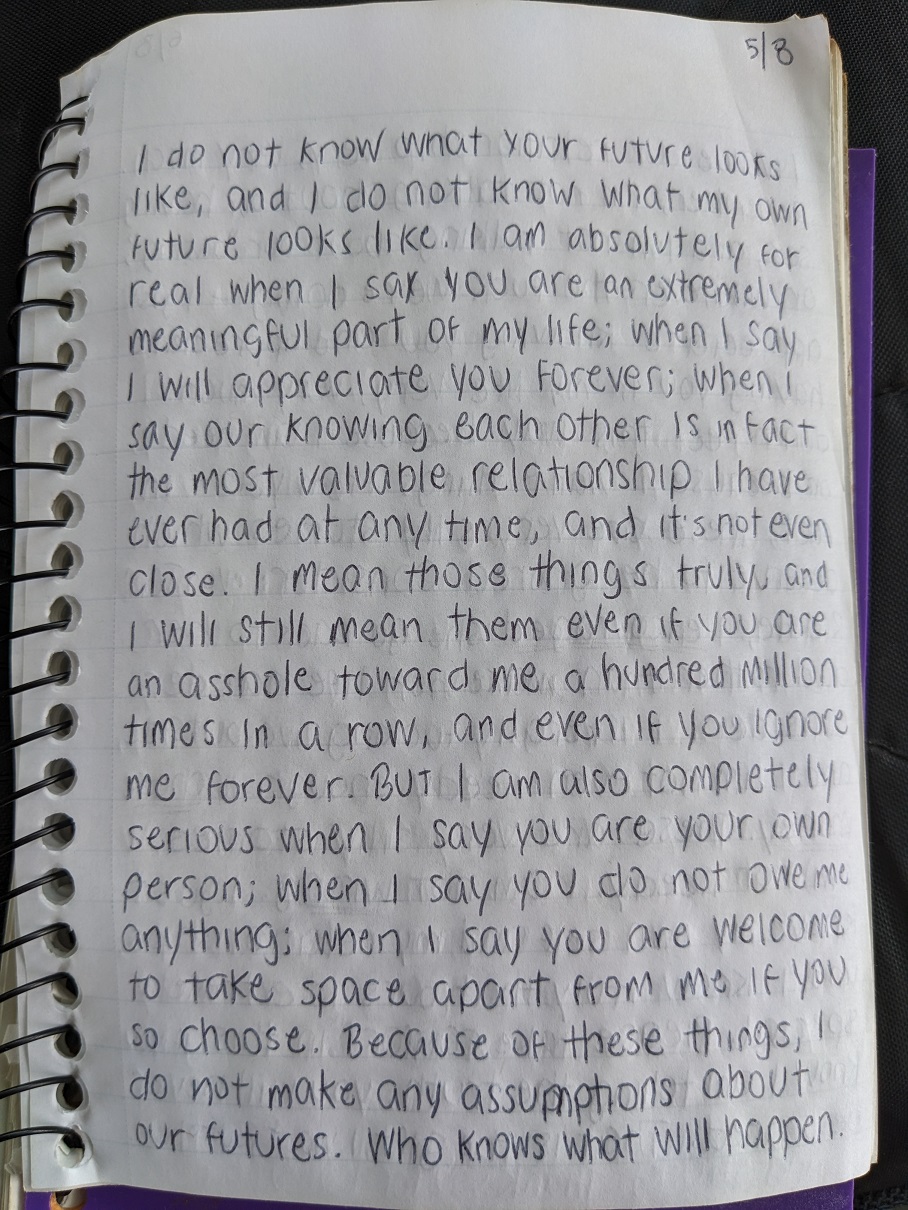 5/8
I do not know what your future looks
like, and I do not know what my own
future looks like. I am absolutely for
real when I say you are an extremely
meaningful part of my life; when I say
I will appreciate you forever; when I
say our knowing each other is in fact
the most valuable relationship I have
ever had at any time, and it's not even
close. I mean those things truly, and
I will still mean them even if you are
an asshole toward me a hundred million
times in a row, and even if you ignore
me forever. But I am also completely
serious when I say you are your own
person; when I say you do not owe me
anything; when I say you are welcome
to take space apart from me if you
so choose. Because of these things, I
do not make any assumptions about
our futures. Who knows what will happen.